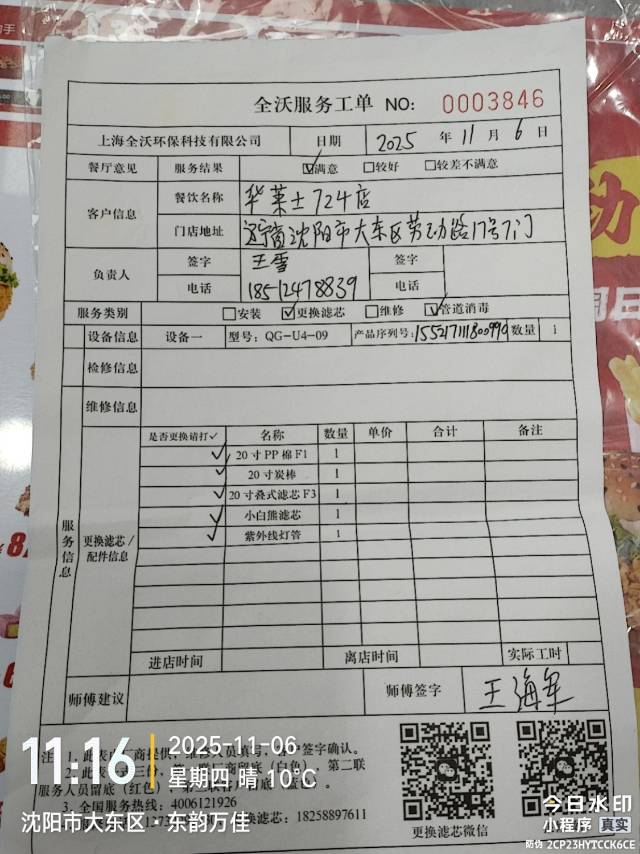 全沃服务工单 NO: 0003846
上海全沃环保科技有限公司 日期 2025 年 11 月 6 日
餐厅意见 服务结果 ☑满意 □较好 □较差不满意
客户信息 餐饮名称 华莱士724店
门店地址 辽宁省沈阳市大东区劳动路17号7门
负责人 签字 王雪 签字
电话 18512478839 电话
服务类别 □安装 ☑更换滤芯 □维修 ☑管道消毒
设备信息 设备一 型号: QG-U4-09 产品序列号: 数量 1
检修信息
维修信息
服务信息
更换滤芯/配件信息
是否更换请打✓ 名称 数量 单价 合计 备注
✓ 20寸PP棉F1 1
✓ 20寸炭棒 1
✓ 20寸叠式滤芯F3 1
✓ 小白熊滤芯 1
✓ 紫外线灯管 1
进店时间 离店时间 实际工时
师傅建议 师傅签字 王海军
1、此表由厂商提供,
签字确认。
(白色)、第二联
服务人员留底(红色)
3、全国服务热线: 4006121926
18258897611
更换滤芯微信
11:16
2025-11-06
星期四 晴 10°C
沈阳市大东区·东韵万佳
今日水印
小程序 真实
防伪 2CP23HYTCCK6CE